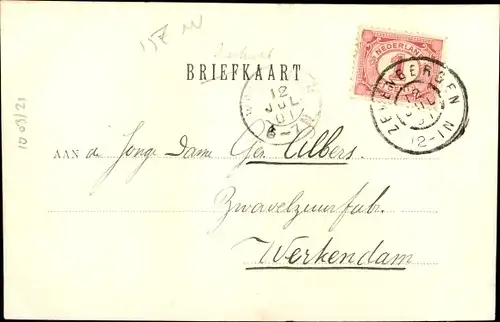 157
BRIEFKAART
NEDERLAND
1
ZEVENBERGEN
12
JUL
01
12-1N
12
JUL
01
6-
1N
10 09/21
AAN de Jonge Dame Ger. Albers.
Zwavelzuurfab.
Werkendam